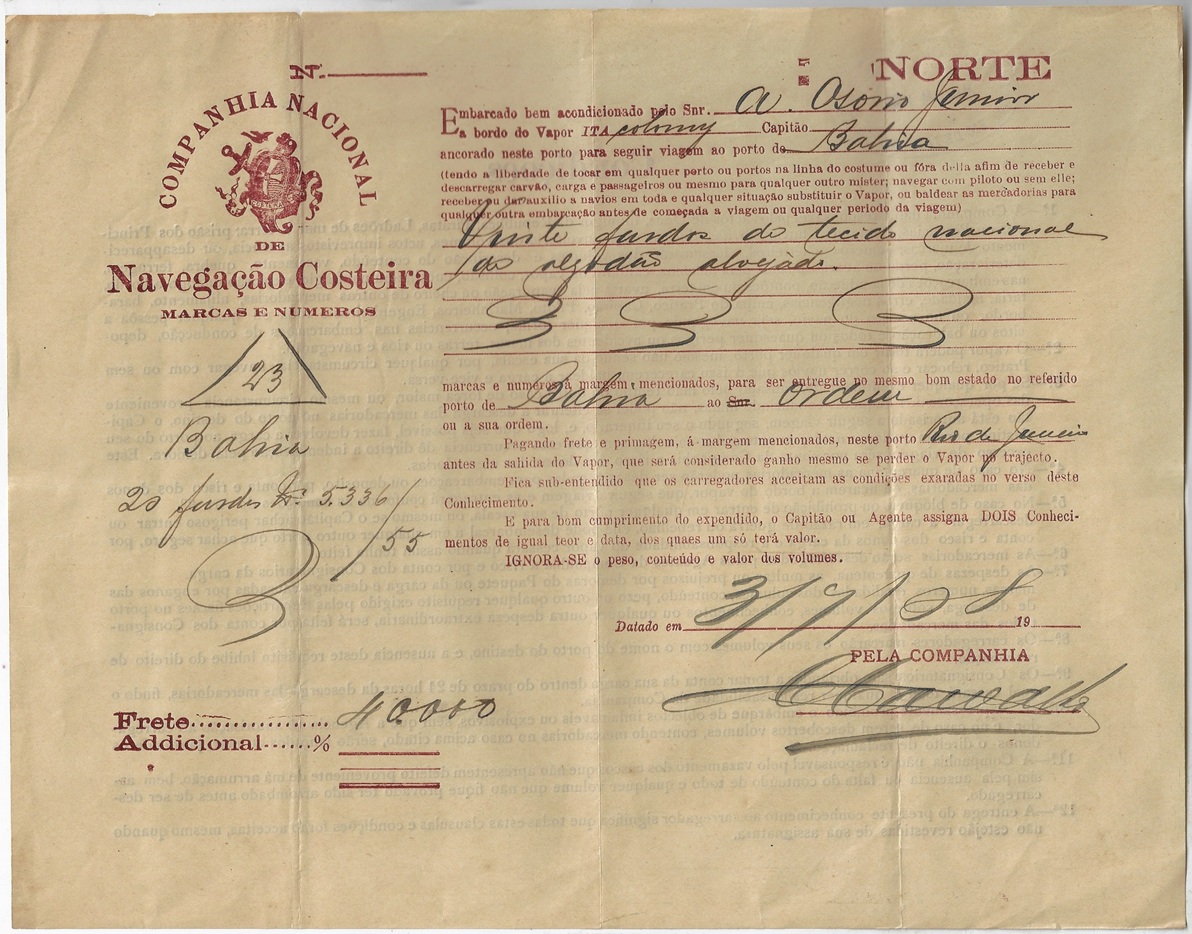 N.
NORTE
COMPANHIA NACIONAL
DE
Navegação Costeira
MARCAS E NUMEROS
23
Bahia
20 fardos Nos 5.336/
/55
Frete 40.000
Addicional %
Embarcado bem acondicionado pelo Snr. A. Osorio Junior
a bordo do Vapor ITAcolomy Capitão
ancorado neste porto para seguir viagem ao porto de Bahia
(tendo a liberdade de tocar em qualquer porto ou portos na linha do costume ou fóra della afim de receber e
descarregar carvão, carga e passageiros ou mesmo para qualquer outro mister; navegar com piloto ou sem elle;
receber ou dar auxilio a navios em toda e qualquer situação substituir o Vapor, ou baldear as mercadorias para
qualquer outra embarcação antes de começada a viagem ou qualquer periodo da viagem)
Vinte fardos de tecido nacional
de algodão alvejado.
marcas e numeros á margem mencionados, para ser entregue no mesmo bom estado no referido
porto de Bahia ao Snr. Ordem
ou a sua ordem.
Pagando frete e primagem, á margem mencionados, neste porto Rio de Janeiro
antes da sahida do Vapor, que será considerado ganho mesmo se perder o Vapor no trajecto.
Fica sub-entendido que os carregadores acceitam as condições exaradas no verso deste
Conhecimento.
E para bom cumprimento do expendido, o Capitão ou Agente assigna DOIS Conheci-
mentos de igual teor e data, dos quaes um só terá valor.
IGNORA-SE o peso, conteúdo e valor dos volumes.
Datado em 3/7/08 19
PELA COMPANHIA